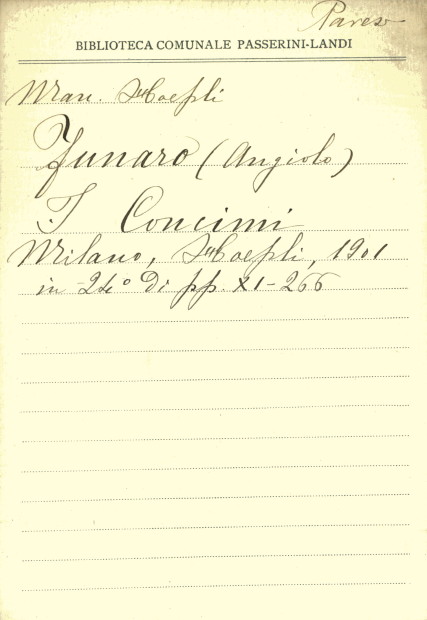 BIBLIOTECA COMUNALE PASSERINI-LANDI
Man. Hoepli
Funaro (Angiolo)
I Concimi
Milano, Hoepli, 1901
in 24º di pp. XI-266